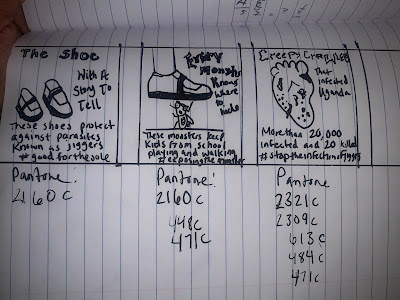 The Shoe
With A
Story To
Tell
These shoes protect
against parasites
Known as jiggers
#goodforthesole
Every
monster
Knows
where to
hide
These monsters keep
Kids from school
playing and walking
#exposingthemonster
Creepy Crawlers
That
infected
Uganda
More than 20,000
infected and 20 killed
#stoptheinfectionofjiggers
Pantone:
2160 C
Pantone:
2160 C
448 C
471 C
Pantone
2321 C
2309 C
613 C
484 C
471 C